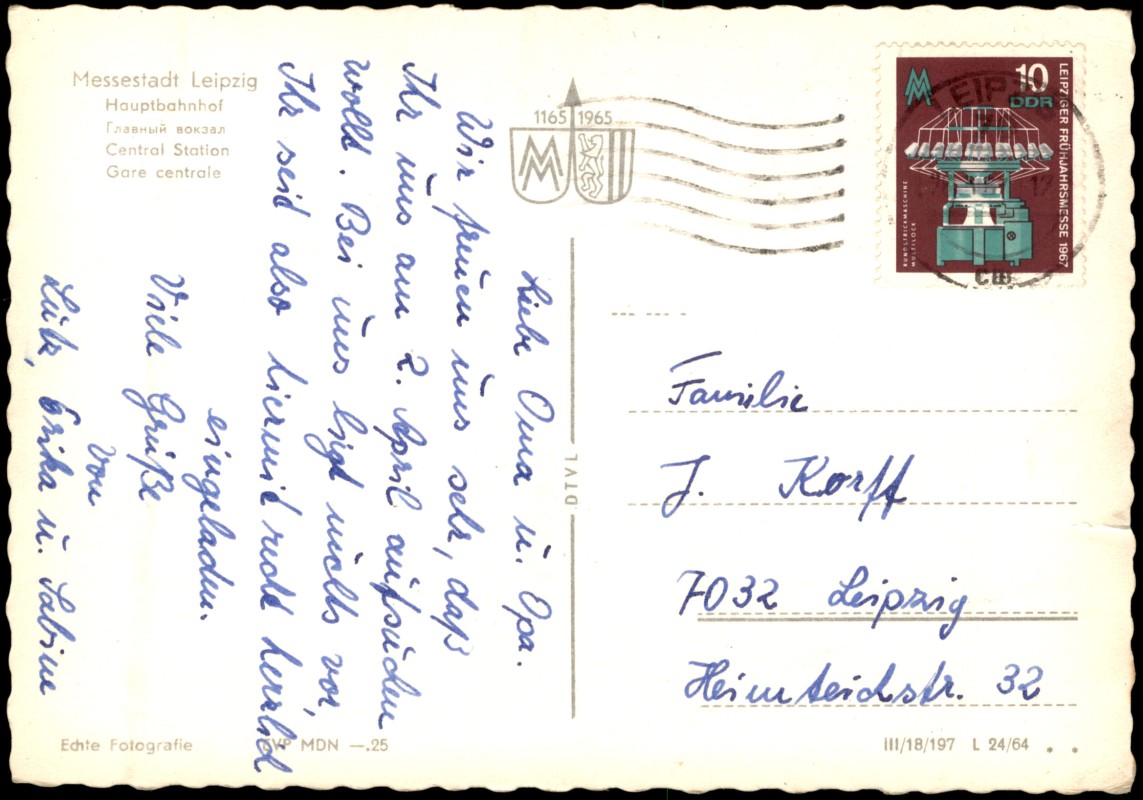 Messestadt Leipzig
Hauptbahnhof
Главный вокзал
Central Station
Gare centrale
1165 1965
Liebe Oma u. Opa.
Wir freuen uns sehr, daß
Ihr uns am 2. April aufsuchen
wollt. Bei uns ligt nichts vor,
Ihr seid also hiermit recht herzlich
eingeladen.
Viele Grüße
von
Lutz, Erika u. Sabine
10
DDR
LEIPZIGER FRÜHJAHRSMESSE 1967
RUNDSTRICKMASCHINE
MULTILOCK
LEIPZIG
Familie
J. Korff
7032 Leipzig
Heimteichstr. 32
Echte Fotografie
EVP MDN —.25
III/18/197 L 24/64